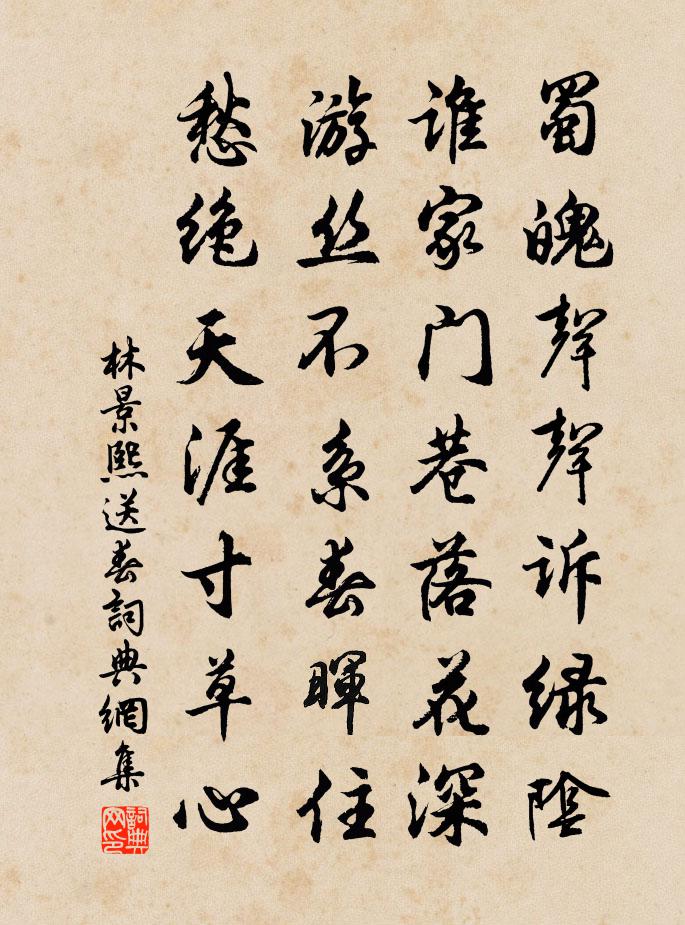 蜀魄聲聲訴绿陰
谁家門巷落花深
游丝不系春暉住
愁绝天涯寸草心
林景熙送春詞典網集
詞典網印